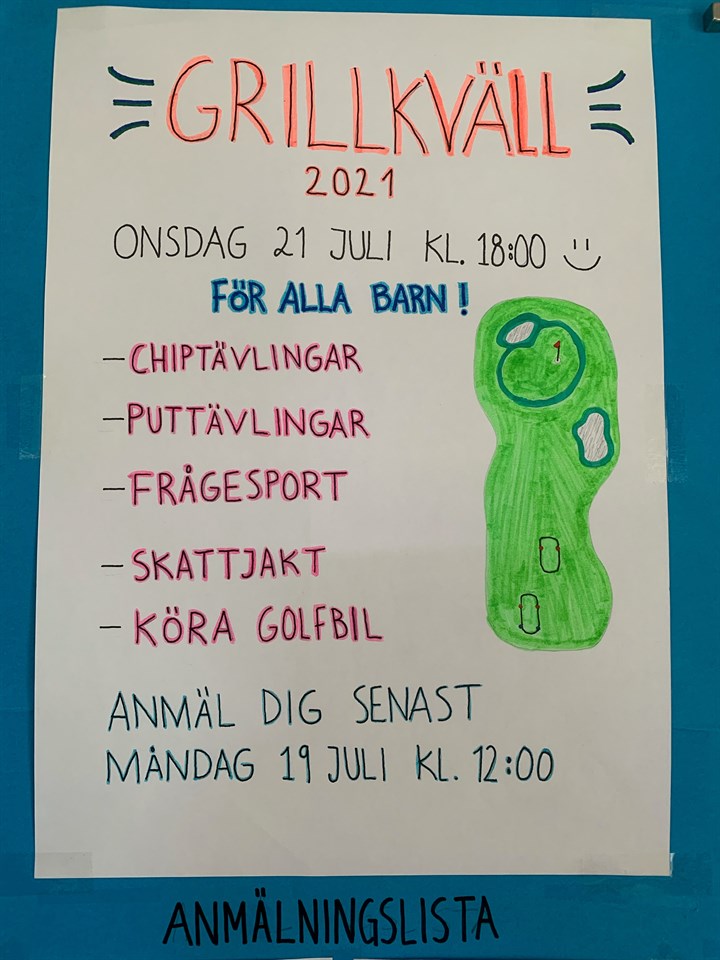 GRILLKVÄLL
2021
ONSDAG 21 JULI KL. 18:00
FÖR ALLA BARN!
- CHIPTÄVLINGAR
- PUTTÄVLINGAR
- FRÅGESPORT
- SKATTJAKT
- KÖRA GOLFBIL
ANMÄL DIG SENAST
MÅNDAG 19 JULI KL. 12:00
ANMÄLNINGSLISTA